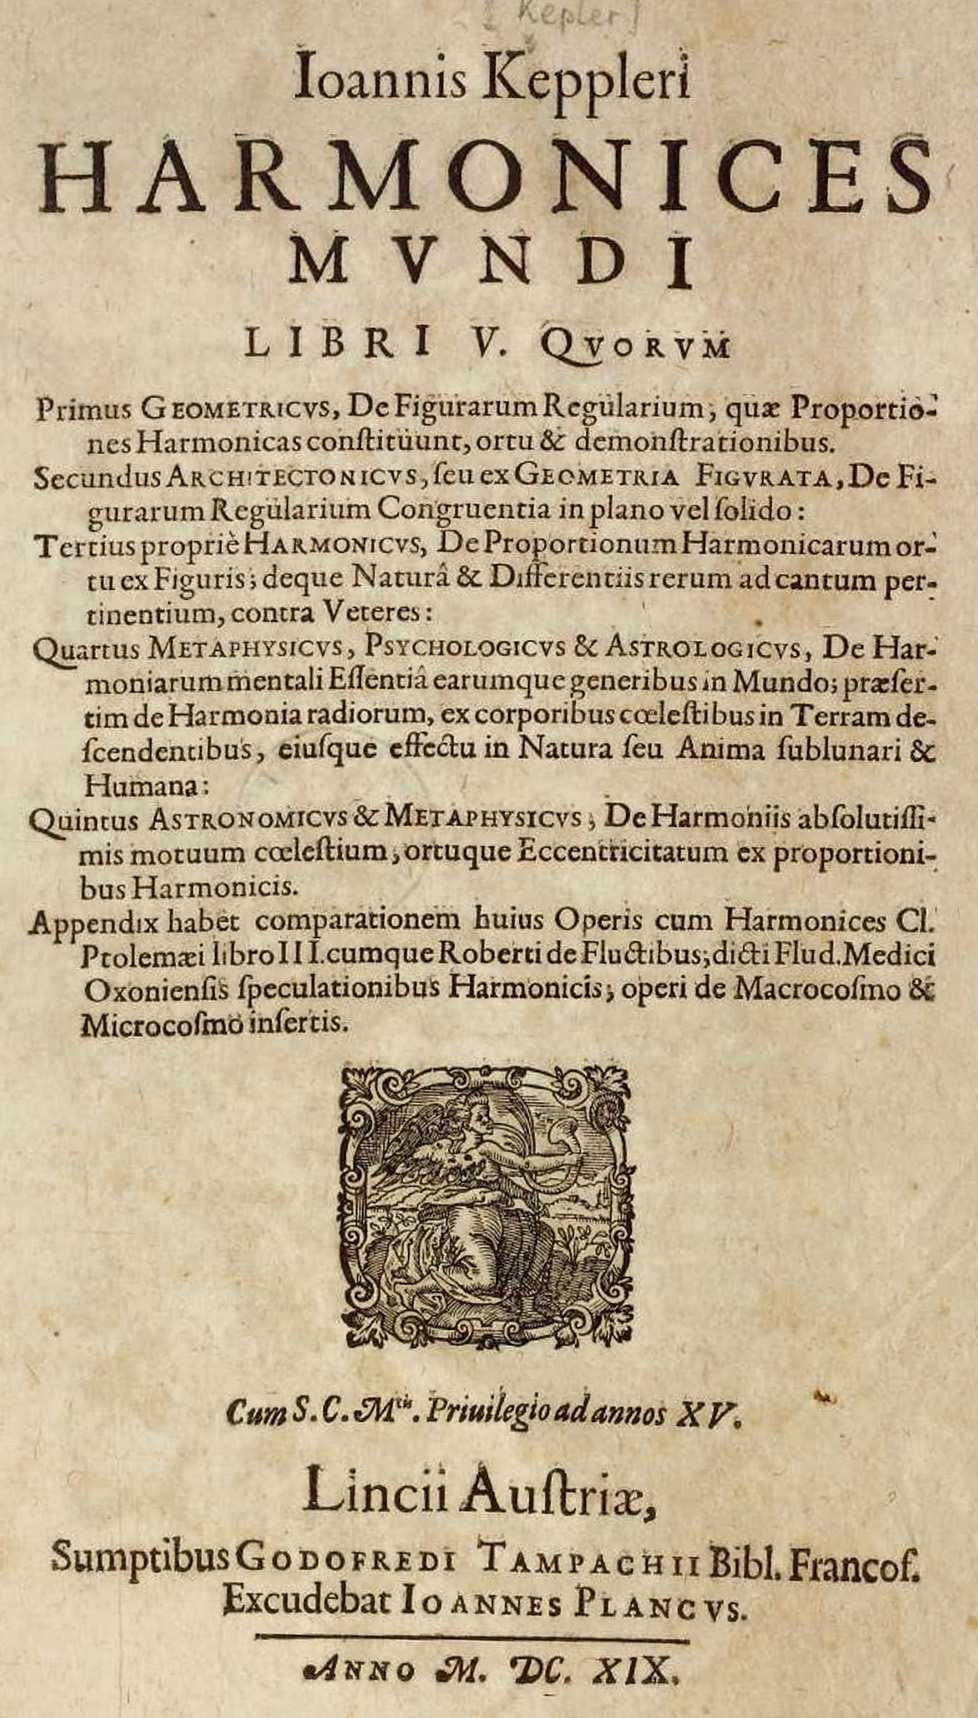 [Kepler]
Ioannis Keppleri
HARMONICES
MVNDI
LIBRI V. QVORVM
Primus GEOMETRICVS, De Figurarum Regularium, quæ Proportio-
nes Harmonicas conſtituunt, ortu & demonſtrationibus.
Secundus ARCHITECTONICVS, ſeu ex GEOMETRIA FIGVRATA, De Fi-
gurarum Regularium Congruentia in plano vel ſolido:
Tertius propriè HARMONICVS, De Proportionum Harmonicarum or-
tu ex Figuris; deque Naturâ & Differentiis rerum ad cantum per-
tinentium, contra Veteres:
Quartus METAPHYSICVS, PSYCHOLOGICVS & ASTROLOGICVS, De Har-
moniarum mentali Eſſentiâ earumque generibus in Mundo; præſer-
tim de Harmonia radiorum, ex corporibus cœleſtibus in Terram de-
ſcendentibus, eiuſque effectu in Natura ſeu Anima ſublunari &
Humana:
Quintus ASTRONOMICVS & METAPHYSICVS, De Harmoniis abſolutiſſi-
mis motuum cœleſtium, ortuque Eccentricitatum ex proportioni-
bus Harmonicis.
Appendix habet comparationem huius Operis cum Harmonices Cl.
Ptolemæi libro III. cumque Roberti de Fluctibus, dicti Flud. Medici
Oxonienſis ſpeculationibus Harmonicis, operi de Macrocoſmo &
Microcoſmo inſertis.
Cum S. C. Mtis. Priuilegio ad annos XV.
Lincii Auſtriæ,
Sumptibus GODOFREDI TAMPACHII Bibl. Francof.
Excudebat IOANNES PLANCVS.
ANNO M. DC. XIX.